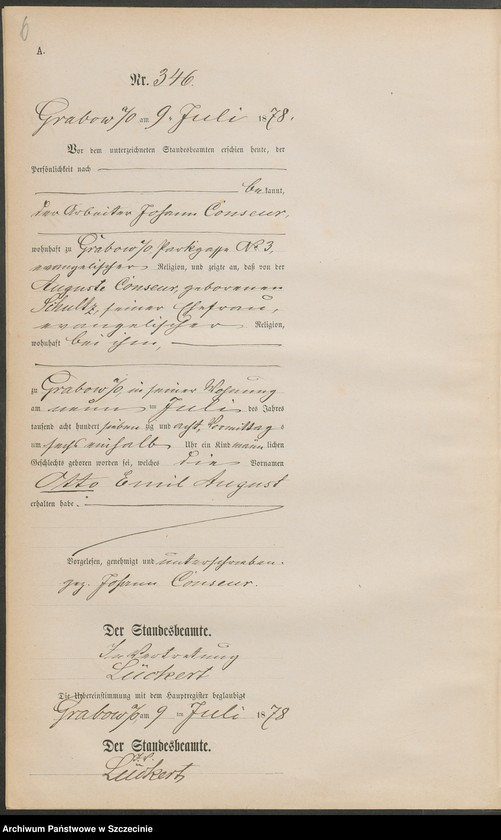 6
A.
Nr. 346.
Grabow a/O am 9. Juli 1878.
Vor dem unterzeichneten Standesbeamten erschien heute, der
Persönlichkeit nach
bekannt,
der Arbeiter Johann Conseur,
wohnhaft zu Grabow a/O, Parkgasse No 3,
evangelischer Religion, und zeigte an, daß von der
Auguste Conseur, geborenen
Schultz, seiner Ehefrau,
evangelischer Religion,
wohnhaft bei ihm,
zu Grabow a/O, in seiner Wohnung
am neunten Juli des Jahres
tausend acht hundert siebenzig und acht, Vormittags
um sechs einhalb Uhr ein Kind männlichen
Geschlechts geboren worden sei, welches die Vornamen
Otto Emil August
erhalten habe.
Vorgelesen, genehmigt und unterschrieben.
gez. Johann Conseur.
Der Standesbeamte.
In Vertretung
Lückert
Die Uebereinstimmung mit dem Hauptregister beglaubigt
Grabow a/O am 9 ten Juli 1878
Der Standesbeamte.
Lückert
Archiwum Państwowe w Szczecinie